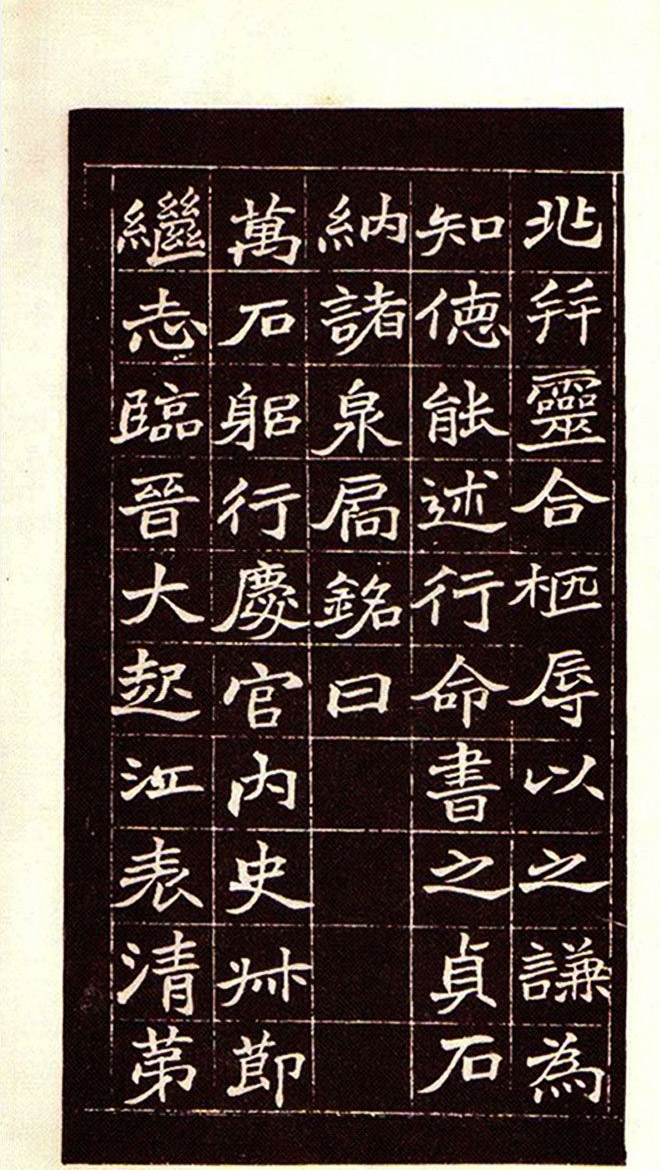 兆并靈合柩辱以之謙為
知德能述行命書之貞石
納諸泉扃銘曰
萬石躬行慶官內史艸節
繼志臨晉大起江表清苐